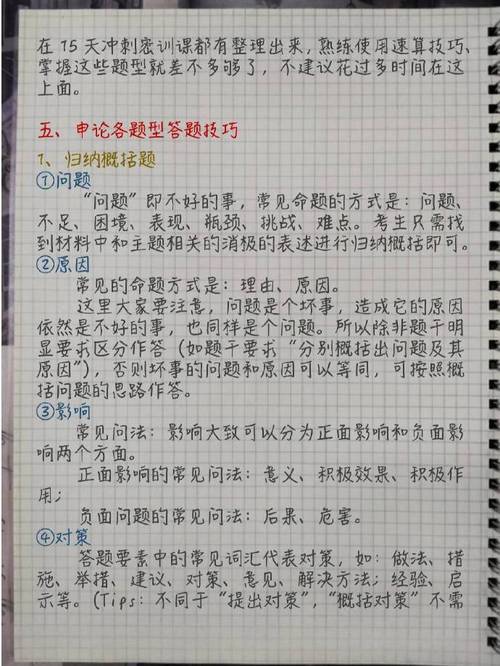 在15天冲刺密训课都有整理出来，熟练使用速算技巧、
掌握这些题型就差不多够了，不建议花过多时间在这
上面。
五、申论各题型答题技巧
1、归纳概括题
①问题
“问题”即不好的事，常见命题的方式是：问题、
不足、困境、表现、瓶颈、挑战、难点。考生只需找
到材料中和主题相关的消极的表述进行归纳概括即可。
②原因
常见的命题方式是：理由、原因。
这里大家要注意，问题是个坏事，造成它的原因
依然是不好的事，也同样是个问题。所以除非题干明
显要求区分作答（如题干要求“分别概括出问题及其
原因”），否则坏事的问题和原因可以等同，可按照概
括问题的思路作答。
③影响
常见问法：影响大致可以分为正面影响和负面影
响两个方面。
正面影响的常见问法：意义、积极效果、积极作
用；
负面问题的常见问法：后果、危害。
④对策
答题要素中的常见词汇代表对策，如：做法、措
施、举措、建议、对策、意见、解决方法；经验、启
示等。(Tips：不同于“提出对策”，“概括对策”不需